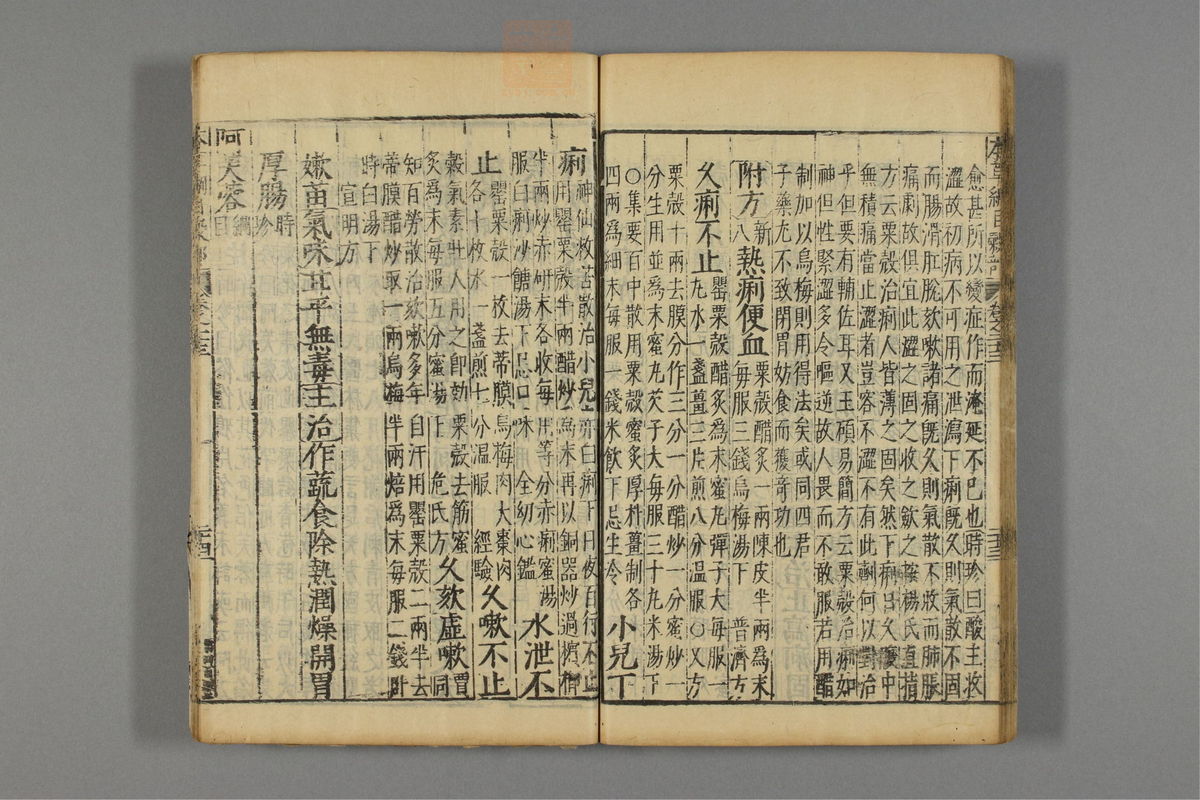 愈甚所以變症作而淹延不已也時珍曰酸主收
澀故初病不可用之泄瀉下痢既久則氣散不固
而腸滑肛脫欬嗽諸痛既久則氣散不收而肺脹
痛劇故俱宜此澀之固之收之斂之按楊氏直指
方云粟殼治痢人皆薄之固矣然下痢日久腹中
無積痛當止澀者豈容不澀不有此劑何以對治
乎但要有輔佐耳又王碩易簡方云粟殼治痢如
神但性緊澀多令嘔逆故人畏而不敢服若用醋
制加以烏梅則用得法矣或同四君
子藥尤不致閉胃妨食而獲奇功也
附方新八熱痢便血粟殼醋炙一兩陳皮半兩爲末
每服三錢烏梅湯下 普濟方
久痢不止罌粟殼醋炙爲末蜜丸彈子大每服一
丸水一盞薑三片煎八分溫服○又方
粟殼十兩去膜分作三分一分醋炒一分蜜炒一
分生用並爲末蜜丸芡子大每服三十丸米湯下
○集要百中散用粟殼蜜炙厚朴薑制各
四兩爲細末每服一錢米飲下忌生冷 小兒下
痢神仙救苦散治小兒赤白痢下日夜百行不止
用罌粟殼半兩醋炒爲末再以銅器炒過檳榔
半兩炒赤研末各收每用等分赤痢蜜湯
服白痢沙餹湯下忌口味 全幼心鑑 水泄不
止罌粟殼一枚去蒂膜烏梅肉大棗肉
各十枚水一盞煎七分溫服 經驗 久嗽不止
穀氣素壯人用之即効粟殼去筋蜜
炙爲末每服五分蜜湯下 危氏方 久欬虛嗽賈同
知百勞散治欬嗽多年自汗用罌粟殼二兩半去
蒂膜醋炒取一兩烏梅半兩焙爲末每服二錢臥
時白湯下
宣明方
嫩苗氣味甘平無毒主治作蔬食除熱潤燥開胃
厚腸時珍
阿芙蓉綱目